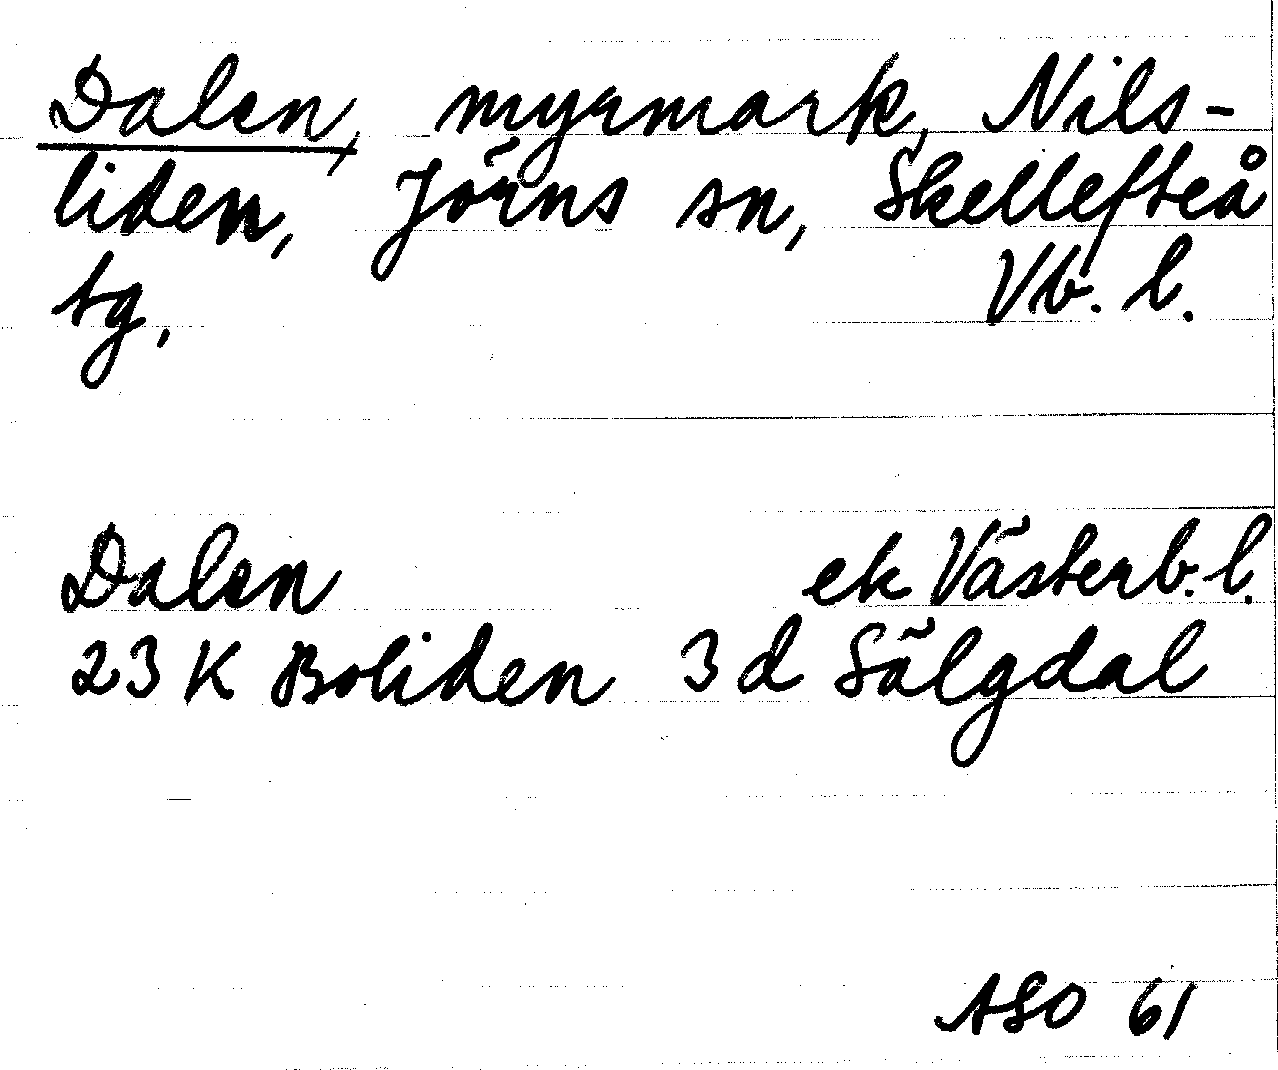 Dalen, myrmark, Nils-
liden, Jörns sn, Skellefteå
tg. Vb. l.
Dalen ek Västerb. l.
23 K Boliden 3 d Sälgdal
ASO 61